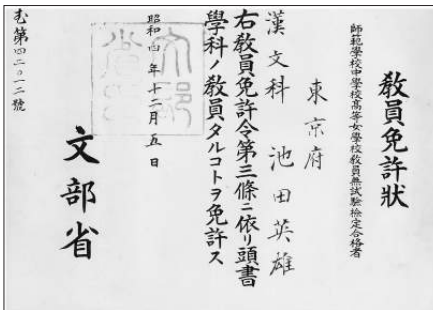 教員免許狀
師範學校中學校高等女學校教員無試驗檢定合格者
東京府
漢文科 池田英雄
右教員免許令第三條ニ依リ頭書
學科ノ教員タルコトヲ免許ス
昭和四年十二月五日
文部省
む第四二〇一二號